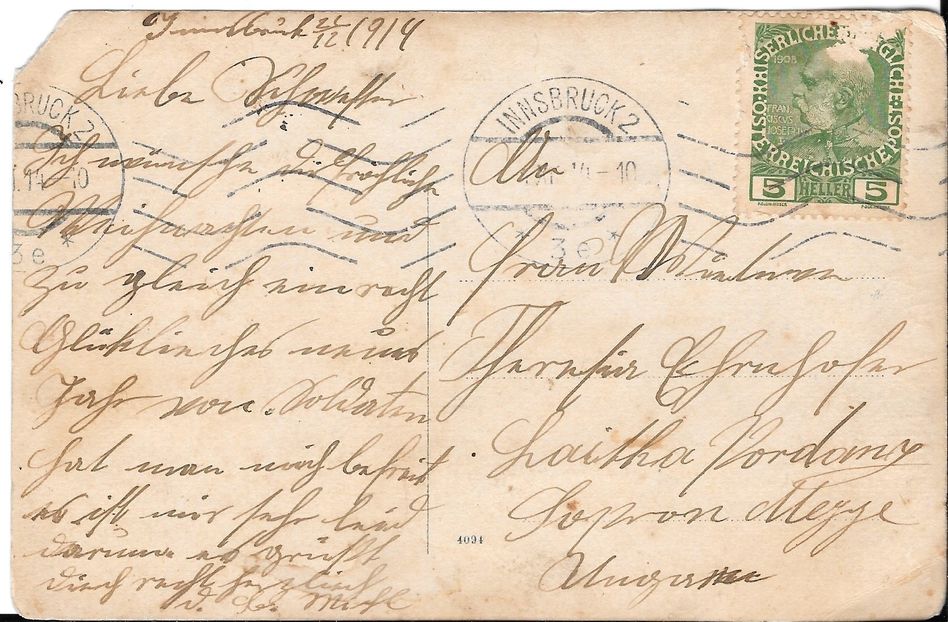 Innsbruck 21/12 1914
Liebe Schwester
Ich wünsche dir fröhliche
Weihnachten und
zu gleich ein recht
Glükliches neues
Jahr von Soldaten
hat man mich befreit
es ist mir sehr leid
darum es grüßt
dich recht herzlich
INNSBRUCK 2
14-10
3e
INNSBRUCK 2
14-10
* 3e *
KAISERLICHE KÖNIGLICHE
ÖSTERREICHISCHE POST
1908
FRAN
CISCVS
IOSEPH I
5 HELLER 5
An
Frau
Theresia Ehrnhofer
Laitha Pordany
Sopron Megye
Ungarn
4094